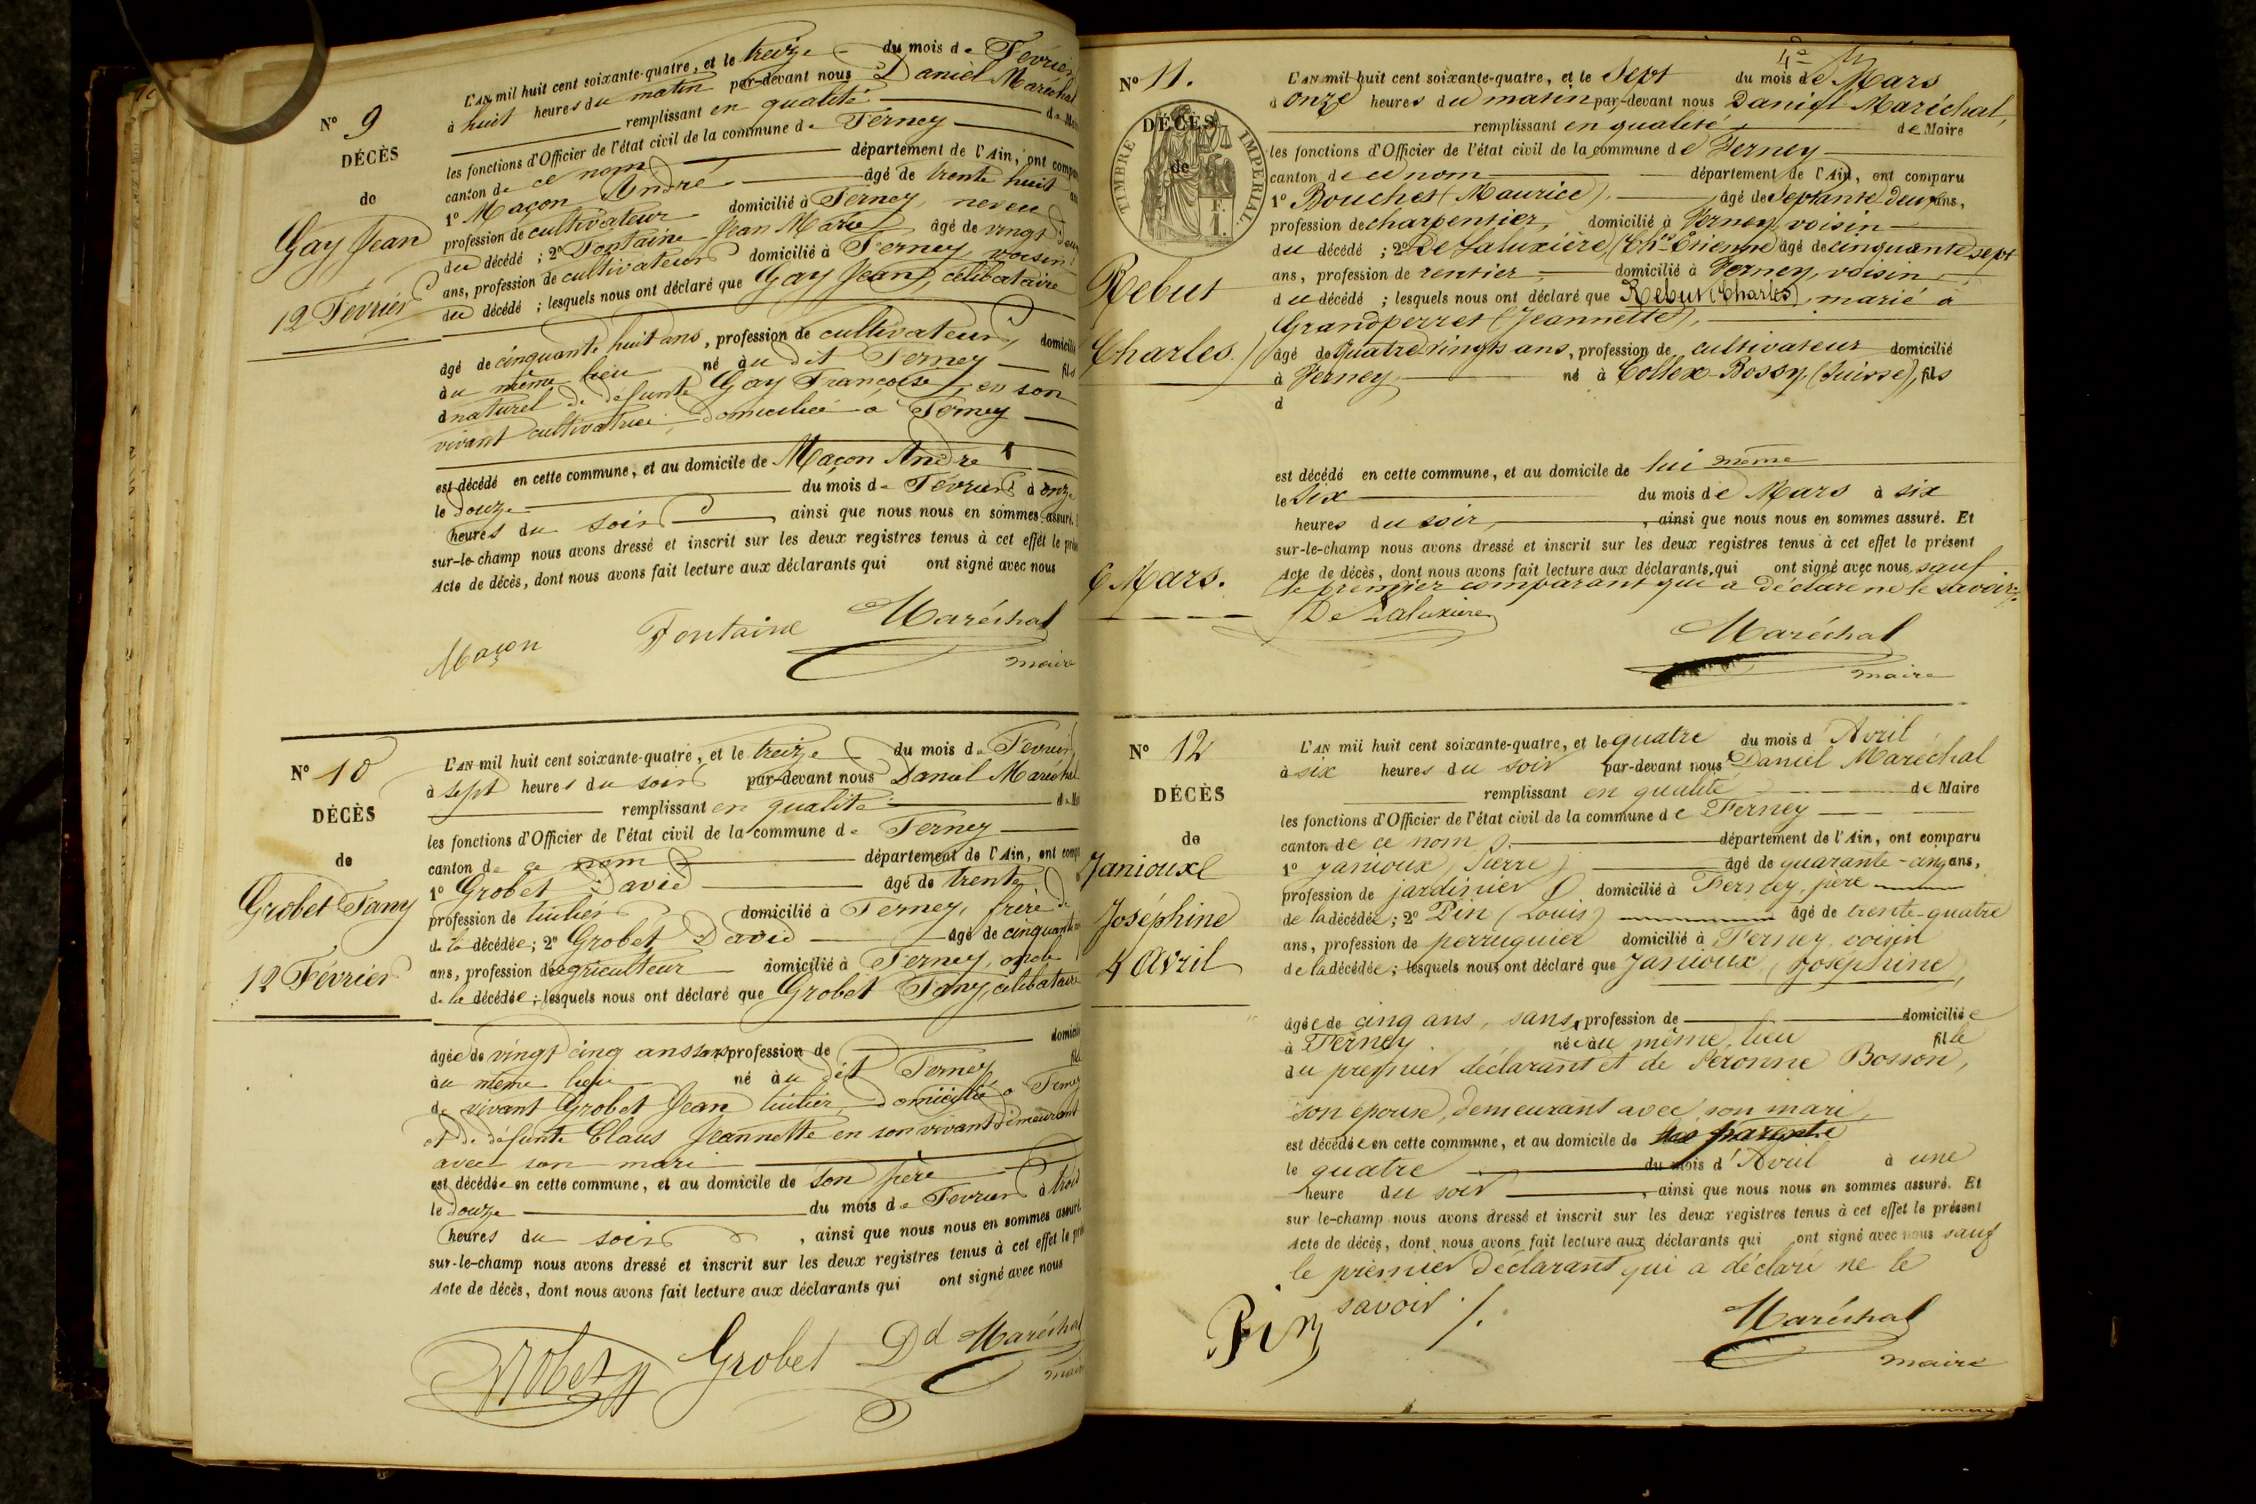 N° 9
DÉCÈS
de
Gay Jean
12 Février
L'AN mil huit cent soixante-quatre, et le treize du mois de Février
à huit heures du matin par-devant nous Daniel Maréchal
remplissant en qualité de Maire
les fonctions d'Officier de l'état civil de la commune de Ferney
canton de ce nom département de l'Ain, ont comparu
1° Maçon André âgé de trente huit ans
profession de cultivateur domicilié à Ferney, neveu
du décédé ; 2° Fontaine Jean Marie âgé de vingt deux
ans, profession de cultivateur domicilié à Ferney, voisin
du décédé ; lesquels nous ont déclaré que Gay Jean, célibataire
âgé de cinquante huit ans, profession de cultivateur, domicilié
au même lieu né au dit Ferney fils
naturel de défunte Gay Françoise, en son
vivant cultivatrice, domiciliée à Ferney
est décédé en cette commune, et au domicile de Maçon André
le douze du mois de Février à onze
heures du soir ainsi que nous nous en sommes assuré.
sur-le-champ nous avons dressé et inscrit sur les deux registres tenus à cet effet le
Acte de décès, dont nous avons fait lecture aux déclarants qui ont signé avec nous
Maçon Fontaine Maréchal
maire
N° 10
DÉCÈS
de
Grobet Fany
12 Février
L'AN mil huit cent soixante-quatre, et le treize du mois de Février
à sept heures du soir par-devant nous Daniel Maréchal
remplissant en qualité de
les fonctions d'Officier de l'état civil de la commune de Ferney
canton de ce nom département de l'Ain, ont
1° Grobet David âgé de trente
profession de tuilier domicilié à Ferney, frère de
de la décédée ; 2° Grobet David âgé de cinquante
ans, profession de agriculteur domicilié à Ferney, oncle
de la décédée ; lesquels nous ont déclaré que Grobet Fany, célibataire
âgée de vingt cinq ans sans profession de domiciliée
au même lieu né au dit Ferney
de vivant Grobet Jean tuilier, domicilié à Ferney
et de défunte Claus Jeannette en son vivant demeurant
avec son mari
est décédée en cette commune, et au domicile de son père
le douze du mois de Février à trois
heures du soir, ainsi que nous nous en sommes assuré.
sur-le-champ nous avons dressé et inscrit sur les deux registres tenus à cet effet le
Acte de décès, dont nous avons fait lecture aux déclarants qui ont signé avec nous
Grobet Grobet Dd Maréchal
maire
N° 11.
DÉCÈS
de
TIMBRE IMPÉRIAL
Rebut
Charles
6 Mars.
L'AN mil huit cent soixante-quatre, et le Sept du mois de Mars
à onze heures du matin par-devant nous Daniel Maréchal,
remplissant en qualité de Maire
les fonctions d'Officier de l'état civil de la commune de Ferney
canton de ce nom département de l'Ain, ont comparu
1° Bouchet (Maurice), âgé de Septante deux ans,
profession de charpentier, domicilié à Ferney, voisin
du décédé ; 2° De Laluxière, (Chs Étienne) âgé de cinquante sept
ans, profession de rentier, domicilié à Ferney, voisin
du décédé ; lesquels nous ont déclaré que Rebut (Charles), marié à
Grandperret (Jeannette),
âgé de quatre vingts ans, profession de cultivateur domicilié
à Ferney né à Collex-Bossy, (Suisse), fils
d
est décédé en cette commune, et au domicile de lui même
le Six du mois de Mars à six
heures du soir, ainsi que nous nous en sommes assuré. Et
sur-le-champ nous avons dressé et inscrit sur les deux registres tenus à cet effet le présent
Acte de décès, dont nous avons fait lecture aux déclarants, qui ont signé avec nous sauf
le premier comparant qui a déclaré ne le savoir
De Laluxière
Maréchal
maire
N° 12
DÉCÈS
de
Janioux
Joséphine
4 Avril
L'AN mil huit cent soixante-quatre, et le quatre du mois d Avril
à six heures du soir par-devant nous Daniel Maréchal
remplissant en qualité de Maire
les fonctions d'Officier de l'état civil de la commune de Ferney
canton de ce nom département de l'Ain, ont comparu
1° Janioux (Pierre) âgé de quarante-cinq ans,
profession de jardinier domicilié à Ferney, père
de la décédée ; 2° Pin (Louis) âgé de trente-quatre
ans, profession de perruquier domicilié à Ferney, voisin
de la décédée ; lesquels nous ont déclaré que Janioux (Joséphine),
âgée de cinq ans, sans profession de domiciliée
à Ferney née au même lieu fille
du premier déclarant et de Péronne Bosson,
son épouse, demeurant avec son mari,
est décédée en cette commune, et au domicile de ses parents
le quatre du mois d'Avril à une
heure du soir, ainsi que nous nous en sommes assuré. Et
sur le-champ nous avons dressé et inscrit sur les deux registres tenus à cet effet le présent
Acte de décès, dont nous avons fait lecture aux déclarants qui ont signé avec nous sauf
le premier déclarant qui a déclaré ne le
savoir ./.
Pin Maréchal
maire